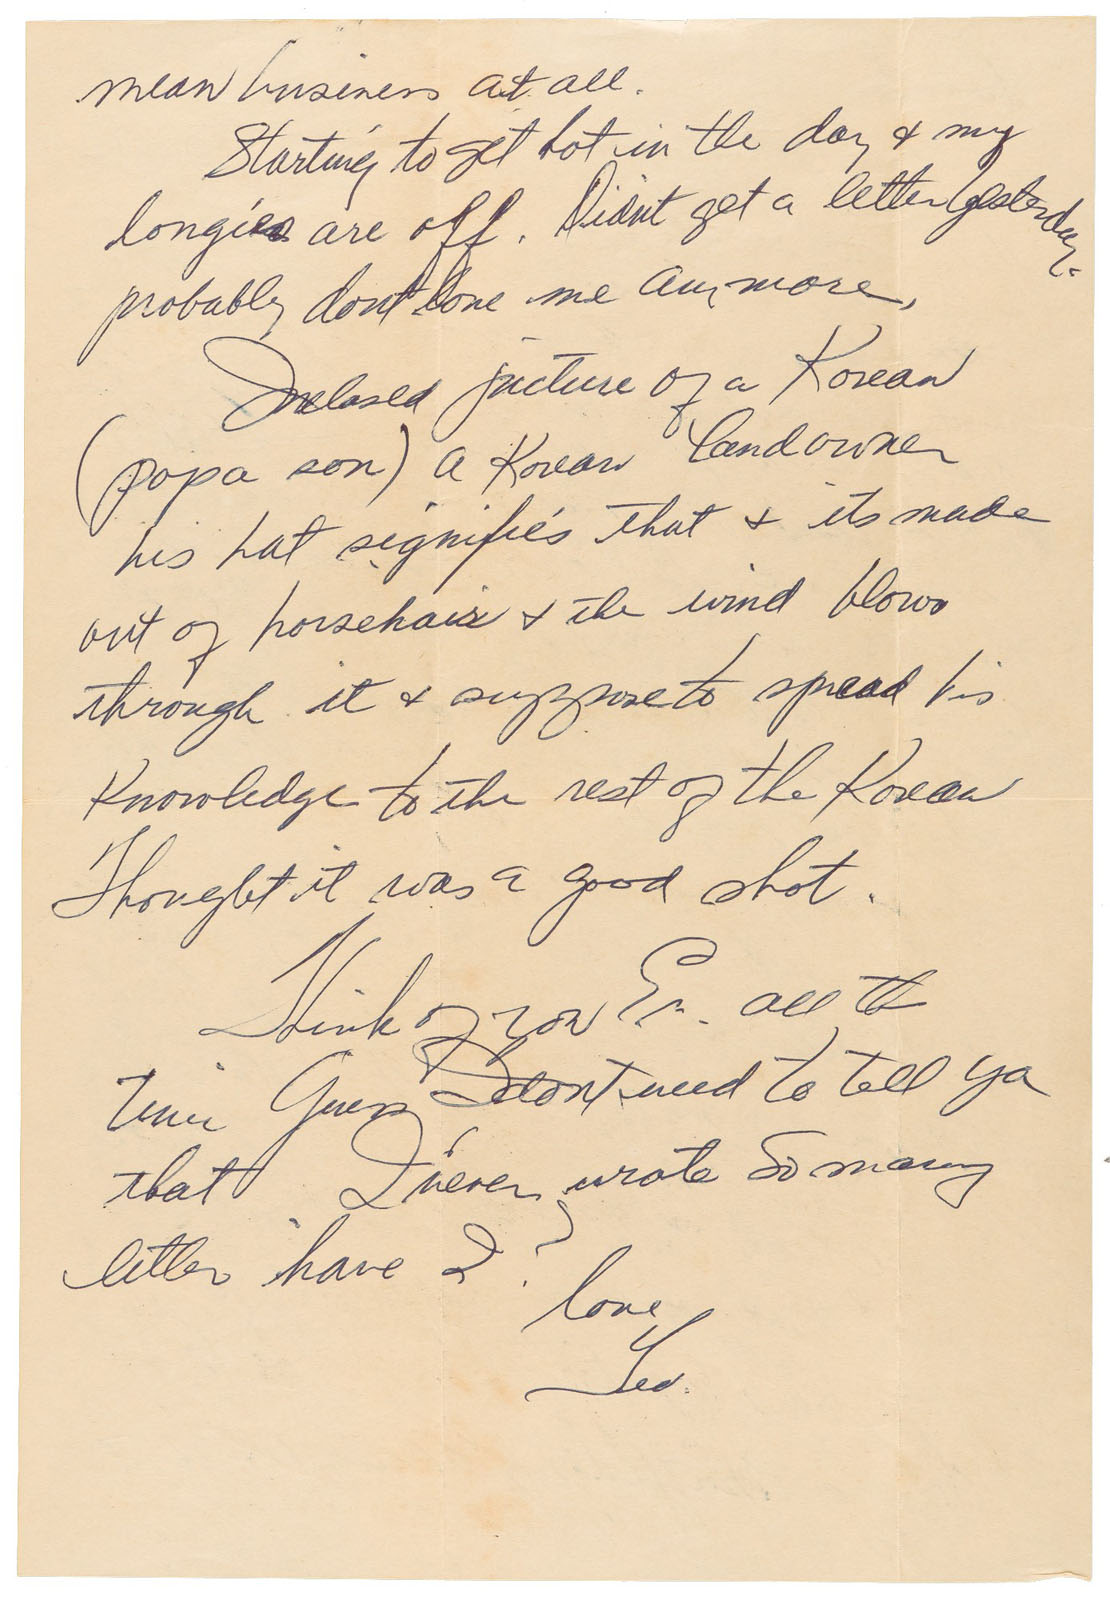 mean business at all.
Starting to get hot in the day & my
longies are off. Didn't get a letter yesterday.
probably dont love me anymore,
Inclosed picture of a Korean
(papa son) a Korean landowner
his hat signifies that & its made
out of horsehair & the wind blows
through it & suppose to spread his
Knowledge to the rest of the Korean
Thought it was a good shot.
Think of you Em. all th
time Guess I dont need to tell ya
that I never wrote so many
letter have I?
love,
Geo.